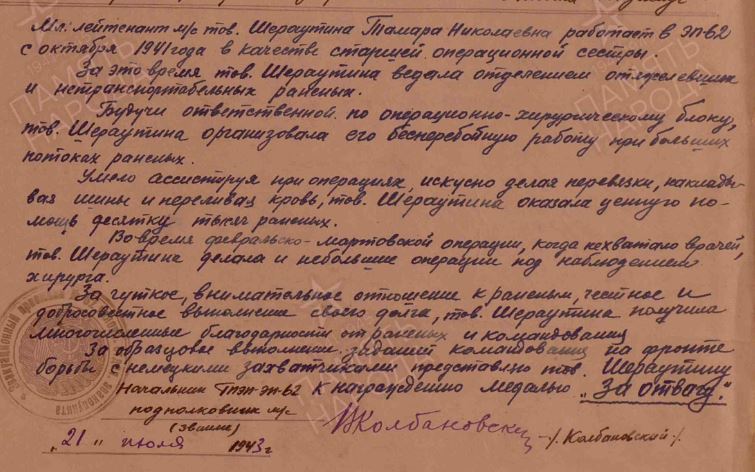 Мл. лейтенант м/с тов. Шераутина Тамара Николаевна работает в ЭП-62
с октября 1941 года в качестве старшей операционной сестры.
За это время тов. Шераутина ведала отделением отяжелевших
и нетранспортабельных раненых.
Будучи ответственной по операционно-хирургическому блоку,
тов. Шераутина организовала его бесперебойную работу при больших
потоках раненых.
Умело ассистируя при операциях, искусно делая перевязки, накладывая
вая шины и переливая кровь, тов. Шераутина оказала ценную по-
мощь десятку тысяч раненых.
Во время февральско-мартовской операции, когда нехватало врачей,
тов. Шераутина делала и небольшие операции под наблюдением
хирурга.
За чуткое, внимательное отношение к раненым, честное и
добросовестное выполнение своего долга, тов. Шераутина получила
многочисленные благодарности от раненых и командования
За образцовое выполнение заданий командования на фронте
борьбы с немецкими захватчиками представляю тов. Шераутину
Начальник ГПЭП-ЭП-62 к награждению медалью „За отвагу."
подполковник м/с
(звание)
ВКолбановский -/. Колбановский ./.
„21 „ июля 1943 г
ПАМЯТЬ
НАРОДА